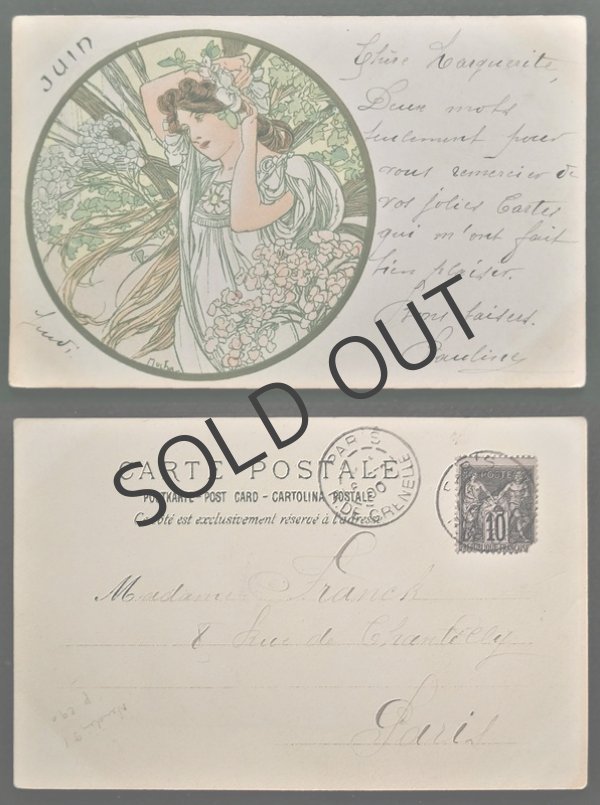 JUIN
Chère Marguerite,
Deux mots
seulement pour
vous remercier de
vos jolies Cartes
qui m'ont fait
bien plaisir.
Bons baisers.
Pauline
Jeudi.
Mucha
SOLD OUT
CARTE POSTALE
POSTKARTE - POST CARD - CARTOLINA POSTALE
Ce côté est exclusivement réservé à l'adresse
PARIS
DE GRENELLE
POSTES
10
Madame Franck
8 Rue de Chantilly
Paris